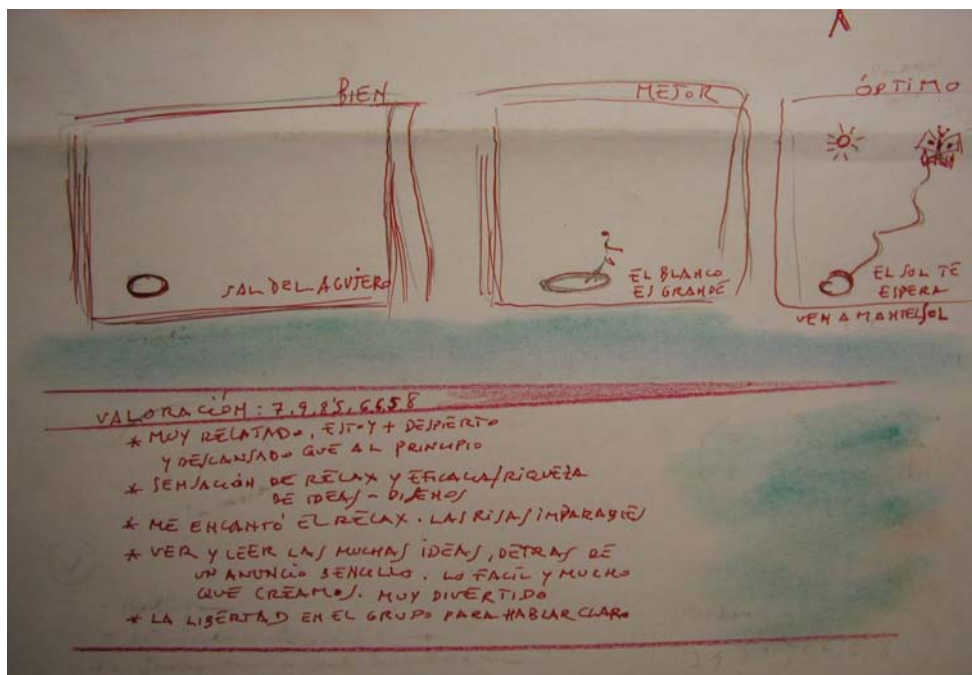 A
BIEN
SAL DEL AGUJERO
MEJOR
EL BLANCO
ES GRANDE
ÓPTIMO
EL SOL TE
ESPERA
VEN A MANTELSOL
VALORACIÓN: 7,9,8'5,6,6,5,8
* MUY RELATADO, ESTOY + DESPIERTO
Y DESCANSADO QUE AL PRINCIPIO
* SENSACIÓN DE RELAX Y EFICACIA/RIQUEZA
DE IDEAS - DISEÑOS
* ME ENCANTÓ EL RELAX. LAS RISAS IMPARABLES
* VER Y LEER LAS MUCHAS IDEAS, DETRAS DE
UN ANUNCIO SENCILLO. LO FACIL Y MUCHO
QUE CREAMOS. MUY DIVERTIDO
* LA LIBERTAD EN EL GRUPO PARA HABLAR CLARO